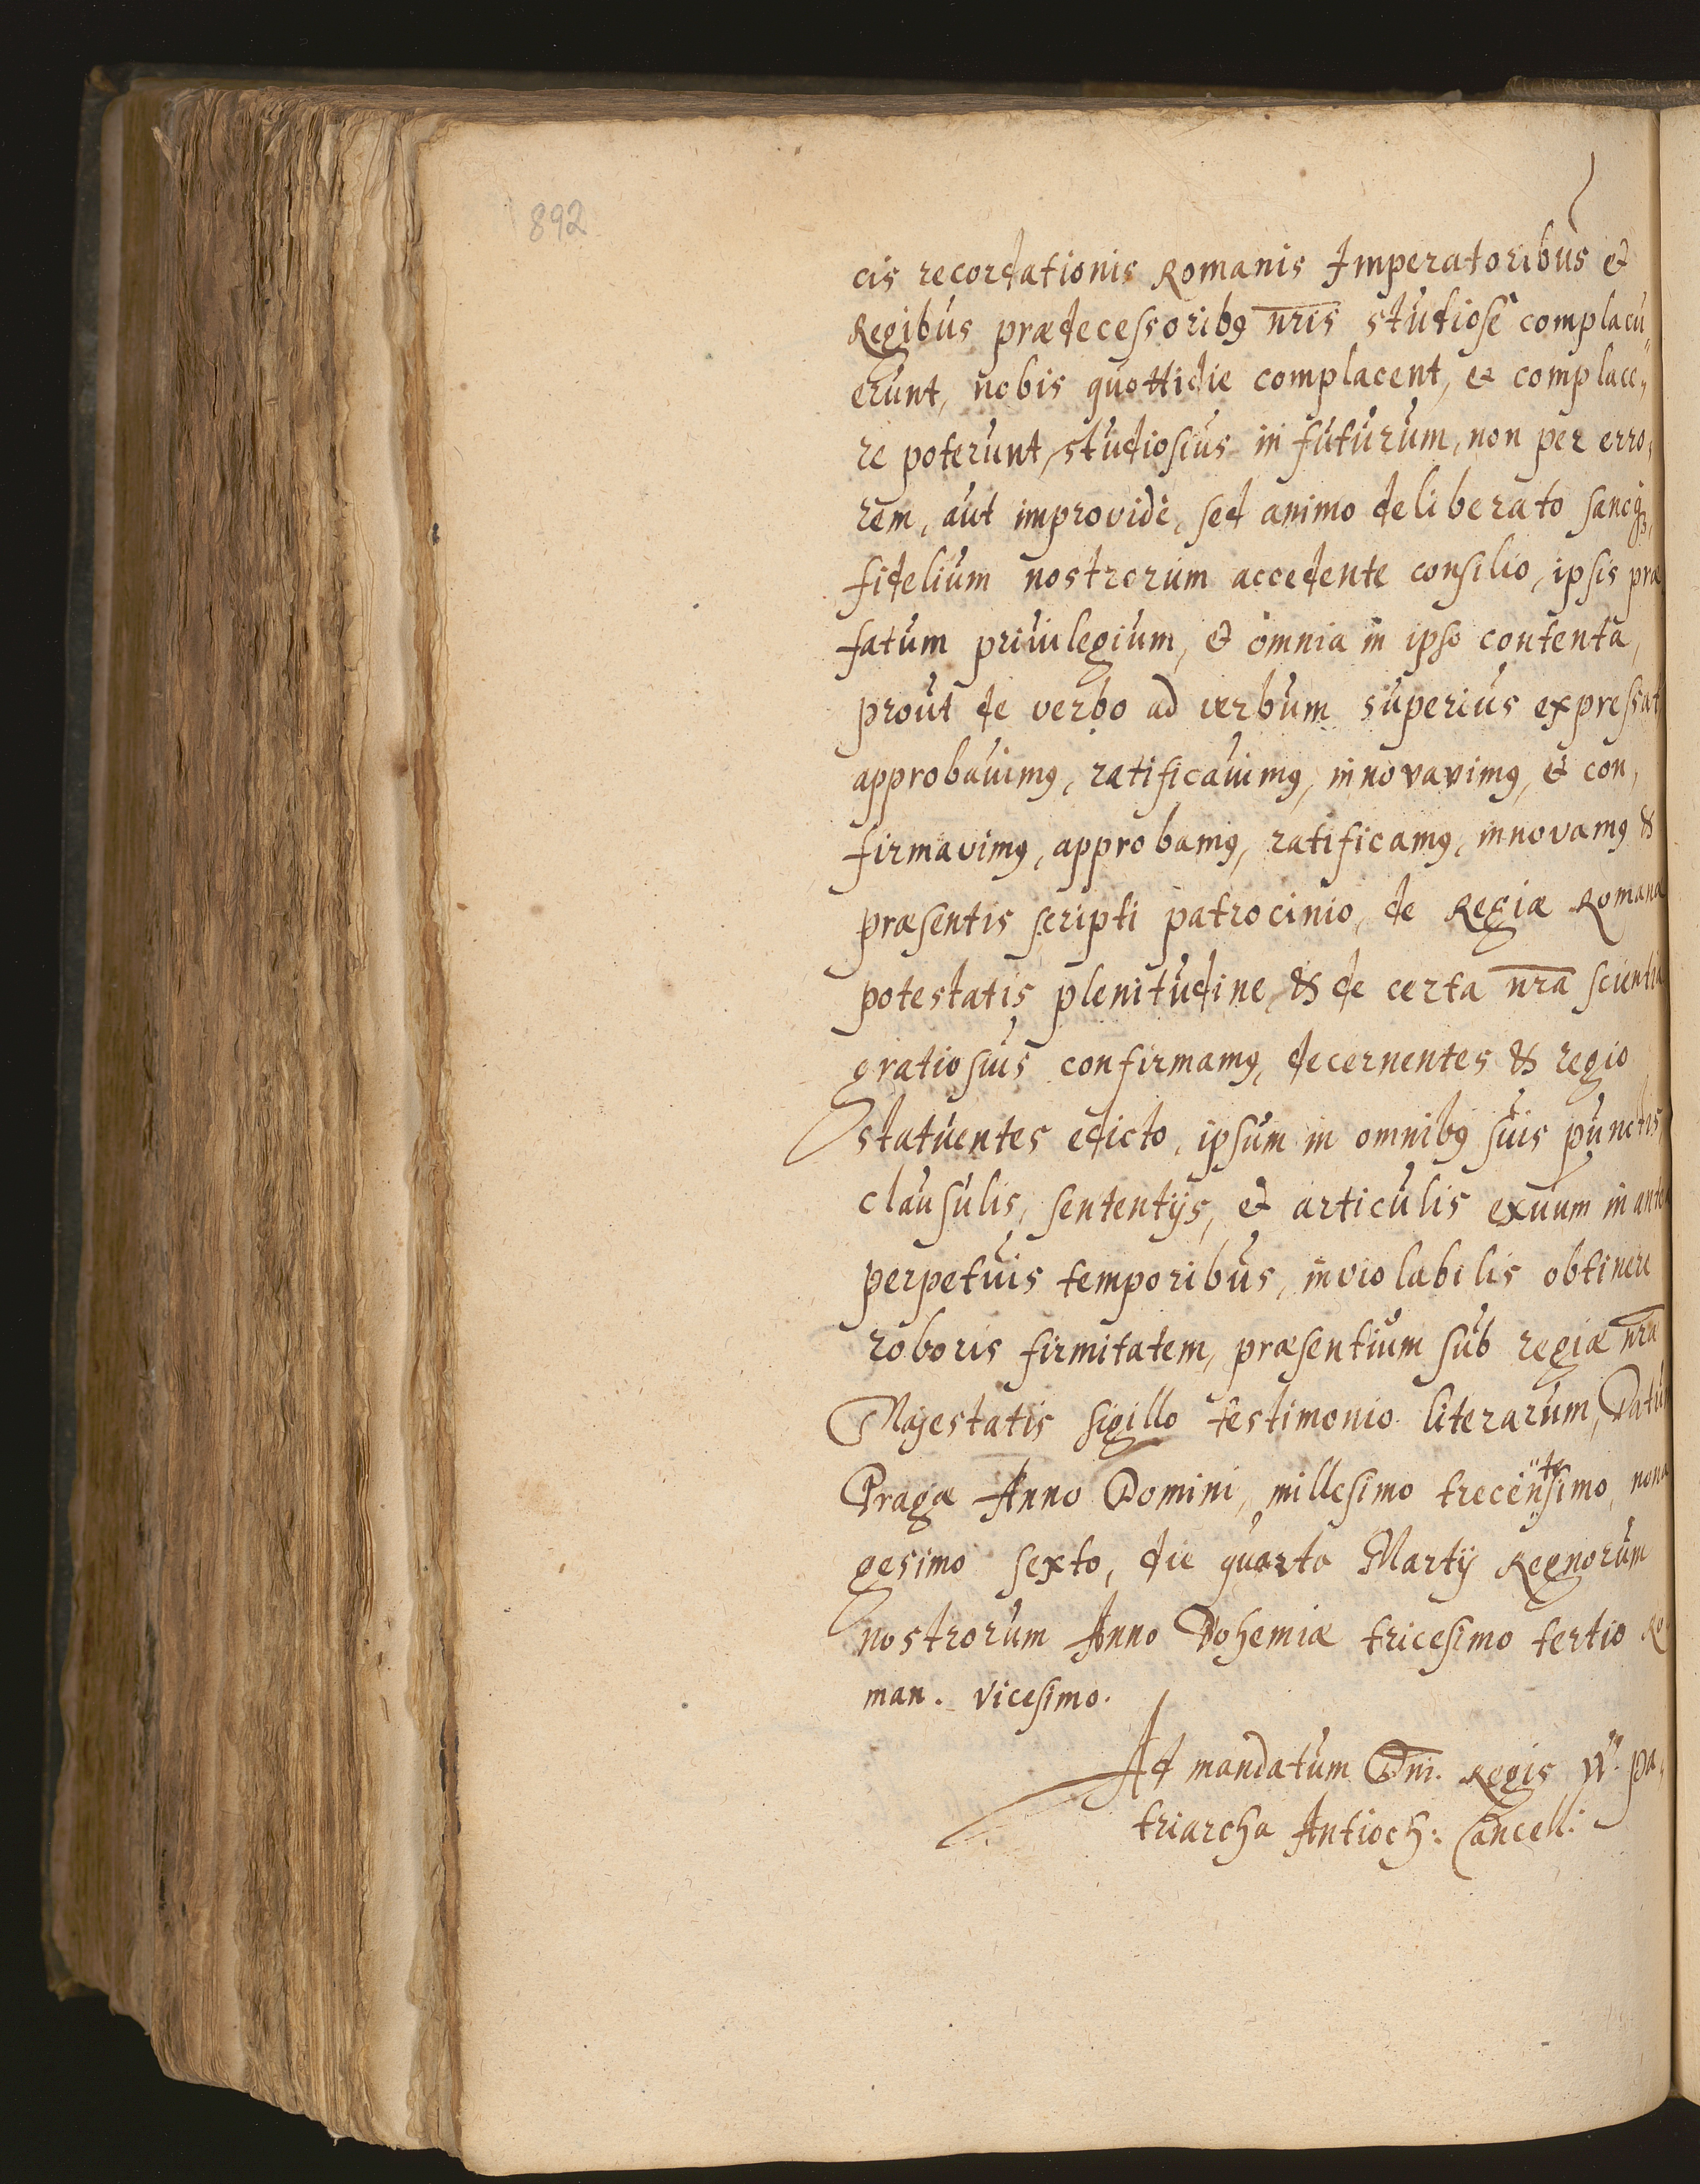 892
cis recordationis Romanis Imperatoribus et
Regibus prædecessoribꝰ nr̄is studiosè complacu„
erunt, nobis quottidie complacent, et complace„
re poterunt, studiosius in futurum, non per erro„
rem, aut improvidè, sed animo deliberato sanoqꝫ
fidelium nostrorum accedente consilio, ipsis præ
fatum priuilegium, et omnia in ipso contenta,
prout de verbo ad verbum superius expressat
approbauimꝰ, ratificauimꝰ, innovavimꝰ, et con„
firmavimꝰ, approbamꝰ, ratificamꝰ, innovamꝰ &
præsentis scripti patrocinio, de Regiæ Romanæ
potestatis plenitudine, & de certa nr̄a scientia
gratiosius confirmamꝰ, decernentes & regio
statuentes edicto, ipsum in omnibꝰ suis punctis
clausulis, sententijs, et articulis exuum in antea
perpetuis temporibus, inviolabilis obtinere
roboris firmitatem, præsentium sub regiæ nr̄æ
Majestatis sigillo testimonio literarum, Datum
Pragæ Anno Domini, millesimo trecentesimo, nona
gesimo sexto, die quarta Martij Regnorum
nostrorum Anno Bohemiæ tricesimo tertio Ro
man. vicesimo.
Ad mandatum Dn̄i. Regis W. pa„
triarcha Antioch: Cancell: